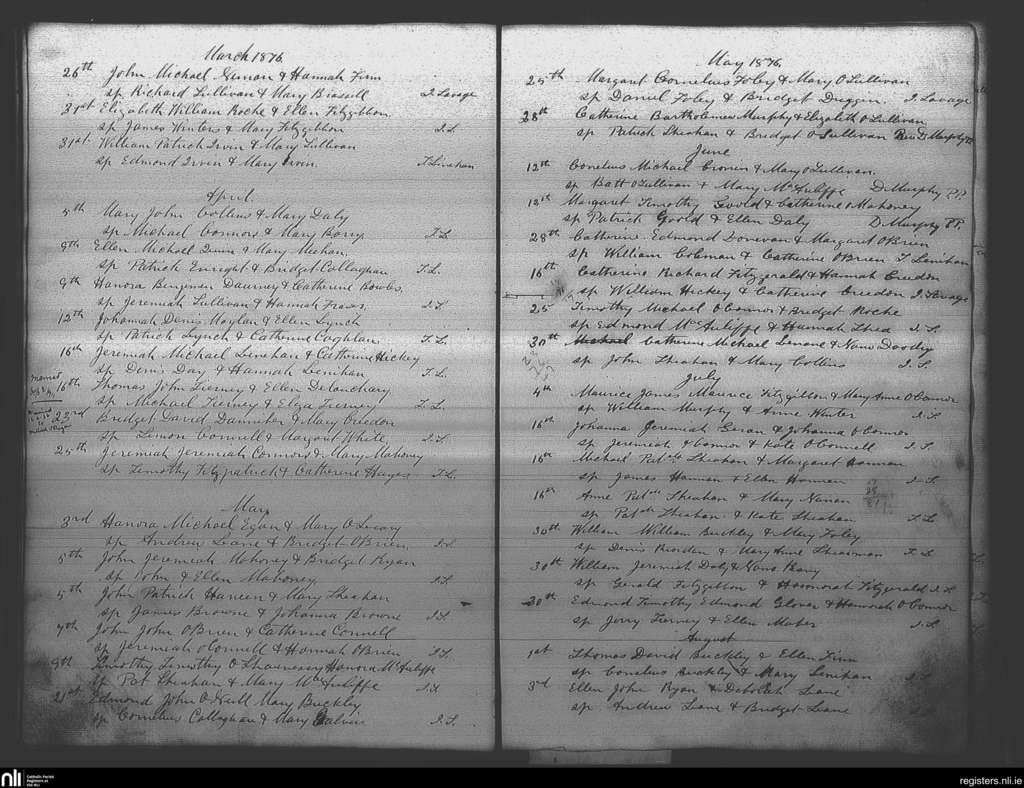 March 1876
26th John Michael & Hannah Finn
sp Richard Sullivan & Mary J. Savage
31st Elizabeth William Roche & Ellen Fitzgibbon
sp James Winters & Mary Fitzgibbon
31st William Patrick Irvin & Mary Sullivan
sp Edmond Irvin & Mary Irvin. T Linehan
April.
5th Mary John Collins & Mary Daly
sp Michael Connors & Mary
9th Ellen Michael Quinn & Mary Meehan
sp Patrick Enright & Bridget Callaghan T.L.
9th Hanora & Catherine
sp Jeremiah Sullivan & Hannah
12th Johannah Denis Moylan & Ellen Lynch
sp Patrick Lynch & Catherine Coghlan T.L.
16th Jeremiah Michael Linehan & Catherine Hickey
sp Denis Day & Hannah Lenihan T.L.
Married
16th Thomas John Tierney & Ellen
sp Michael Tierney & Eliza Tierney T.L.
23rd Bridget David & Mary Creedon
sp Simon Connell & Margaret White
25th Jeremiah Jeremiah Connors & Mary Mahony
sp Timothy Fitzpatrick & Catherine Hayes T.L.
May
3rd Hanora Michael Egan & Mary O Leary
sp Andrew Leane & Bridget O'Brien
5th John Jeremiah Mahoney & Bridget Ryan
sp John & Ellen Mahoney
5th John Patrick & Mary Sheahan
sp James Browne & Johanna Browne
7th John John O'Brien & Catherine Connell
sp Jeremiah O'Connell & Hannah O'Brien
9th Timothy Timothy O Shaunessy Hanora McAuliffe
sp Pat Sheahan & Mary McAuliffe
21st Edmond John O Neill Mary Buckley
sp Cornelius Callaghan & Mary
May 1876
25th Margaret Cornelius Foley & Mary O'Sullivan
sp Daniel Foley & Bridget Duggan J. Savage
28th Catherine Bartholemew Murphy & Elizabeth O'Sullivan
sp Patrick Sheahan & Bridget O Sullivan Rev D Murphy
June
12th Cornelius Michael Cronin & Mary O'Sullivan.
sp Batt O'Sullivan & Mary McAuliffe D. Murphy P.P.
12th Margaret Timothy Goold & Catherine Mahoney
sp Patrick Goold & Ellen Daly D. Murphy P.P.
28th Catherine Edmond Donovan & Margaret O'Brien
sp William Coleman & Catherine O'Brien T Lenihan
16th Catherine Richard Fitzgerald & Hannah Creedon
sp William Hickey & Catherine Creedon J. Savage
25 Timothy Michael O'Connor & Bridget Roche
sp Edmond McAuliffe & Hannah Shea
30th Catherine Michael & Nano
sp John Sheahan & Mary Collins
July
4th Maurice James Maurice Fitzgibbon & Mary Anne O'Connor
sp William Murphy & Anne Winter
16th Johanna Jeremiah & Johanna O'Connor
sp Jeremiah O'Connor & Kate O'Connell
16th Michael Patk Sheahan & Margaret Hannan
sp James Hannan & Ellen Hannan
16th Anne Patk Sheahan & Mary
sp Patk Sheahan & Kate Sheahan
30th William William Buckley & Mary Foley
sp Denis Riordan & Mary Anne
30th William Jeremiah Daly & Nano
sp Gerald Fitzgibbon & Hannorah Fitzgerald
30th Edmond Timothy Edmond Glover & Hannorah O'Connor
sp Jerry Tierney & Ellen Maher
August
1st Thomas David Buckley & Ellen Finn
sp Cornelius Buckley & Mary Lenihan
3rd Ellen John Ryan & Deborah Leane
sp Andrew Leane & Bridget Leane
nli
Catholic Parish
Registers at
the NLI
registers.nli.ie